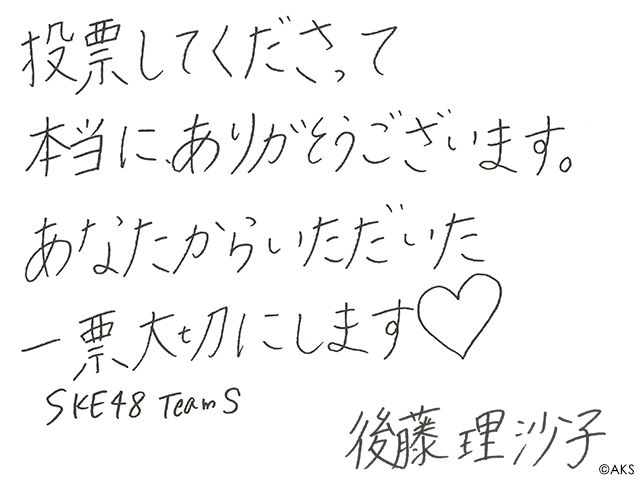 投票してくださって
本当に、ありがそうございます。
あなたからいただいた
一票大切にします♡
SKE48 Team S
後藤理沙子
©AKS